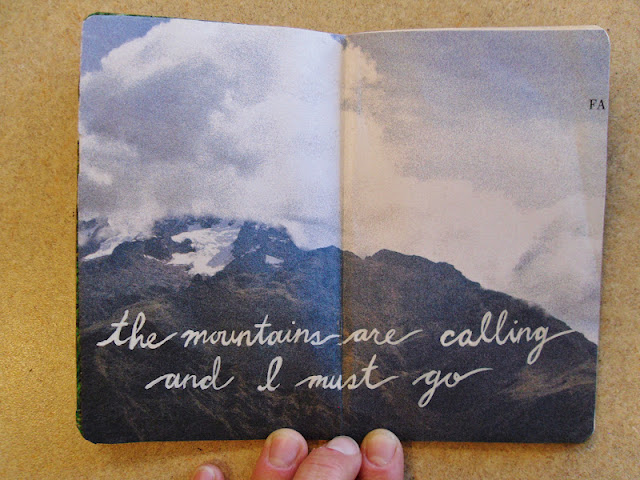 FA
the mountains are calling
and I must go